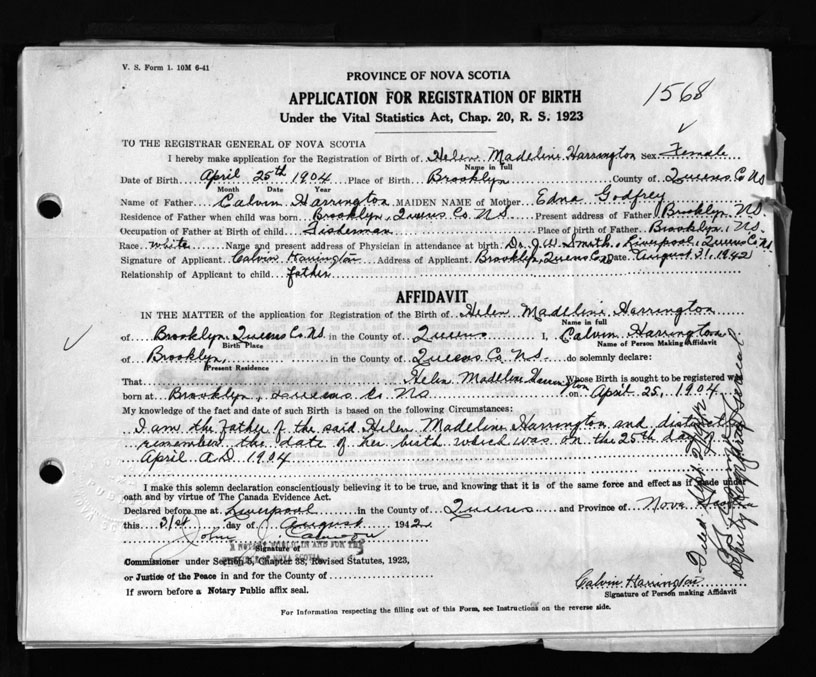 V. S. Form 1. 10M 6-41
PROVINCE OF NOVA SCOTIA
1568
APPLICATION FOR REGISTRATION OF BIRTH
Under the Vital Statistics Act, Chap. 20, R. S. 1923
TO THE REGISTRAR GENERAL OF NOVA SCOTIA
I hereby make application for the Registration of Birth of Helen Madeline Harrington Sex Female
Name in full
Date of Birth April 25th 1904 Place of Birth Brooklyn County of Queens Co NS
Month Date Year
Name of Father Calvin Harrington MAIDEN NAME of Mother Edna Godfrey
Residence of Father when child was born Brooklyn, Queens Co. N.S. Present address of Father Brooklyn NS
Occupation of Father at Birth of child Fisherman Place of birth of Father Brooklyn, NS.
Race White Name and present address of Physician in attendance at birth Dr. J. W. Smith, Liverpool, Queens Co NS
Signature of Applicant Calvin Harrington Address of Applicant Brooklyn, Queens Co NS Date August 31, 1942
Relationship of Applicant to child father
AFFIDAVIT
IN THE MATTER of the application for Registration of the Birth of Helen Madeline Harrington
Name in full
of Brooklyn, Queens Co. NS. in the County of Queens I, Calvin Harrington
Birth Place Name of Person Making Affidavit
of Brooklyn, in the County of Queens Co, NS. do solemnly declare:
Present Residence
That Helen Madeline Harrington Whose Birth is sought to be registered was
born at Brooklyn, Queens Co. NS on April 25, 1904
My knowledge of the fact and date of such Birth is based on the following Circumstances:
I am the father of the said Helen Madeline Harrington and
remember the date of her birth which was on the 25th day
April A.D. 1904
I make this solemn declaration conscientiously believing it to be true, and knowing that it is of the same force and effect as if made under
oath and by virtue of The Canada Evidence Act.
Declared before me at Liverpool in the County of Queens and Province of Nova
this 31st day of August 1942
John
A NOTARY PUBLIC IN AND FOR THE
Signature of
OF NOVA SCOTIA
Commissioner under Section 5, Chapter 38, Revised Statutes, 1923,
or Justice of the Peace in and for the County of
Calvin Harrington
If sworn before a Notary Public affix seal.
Signature of Person making Affidavit
For Information respecting the filling out of this Form, see Instructions on the reverse side.
Filed Sept.
Deputy Registrar General